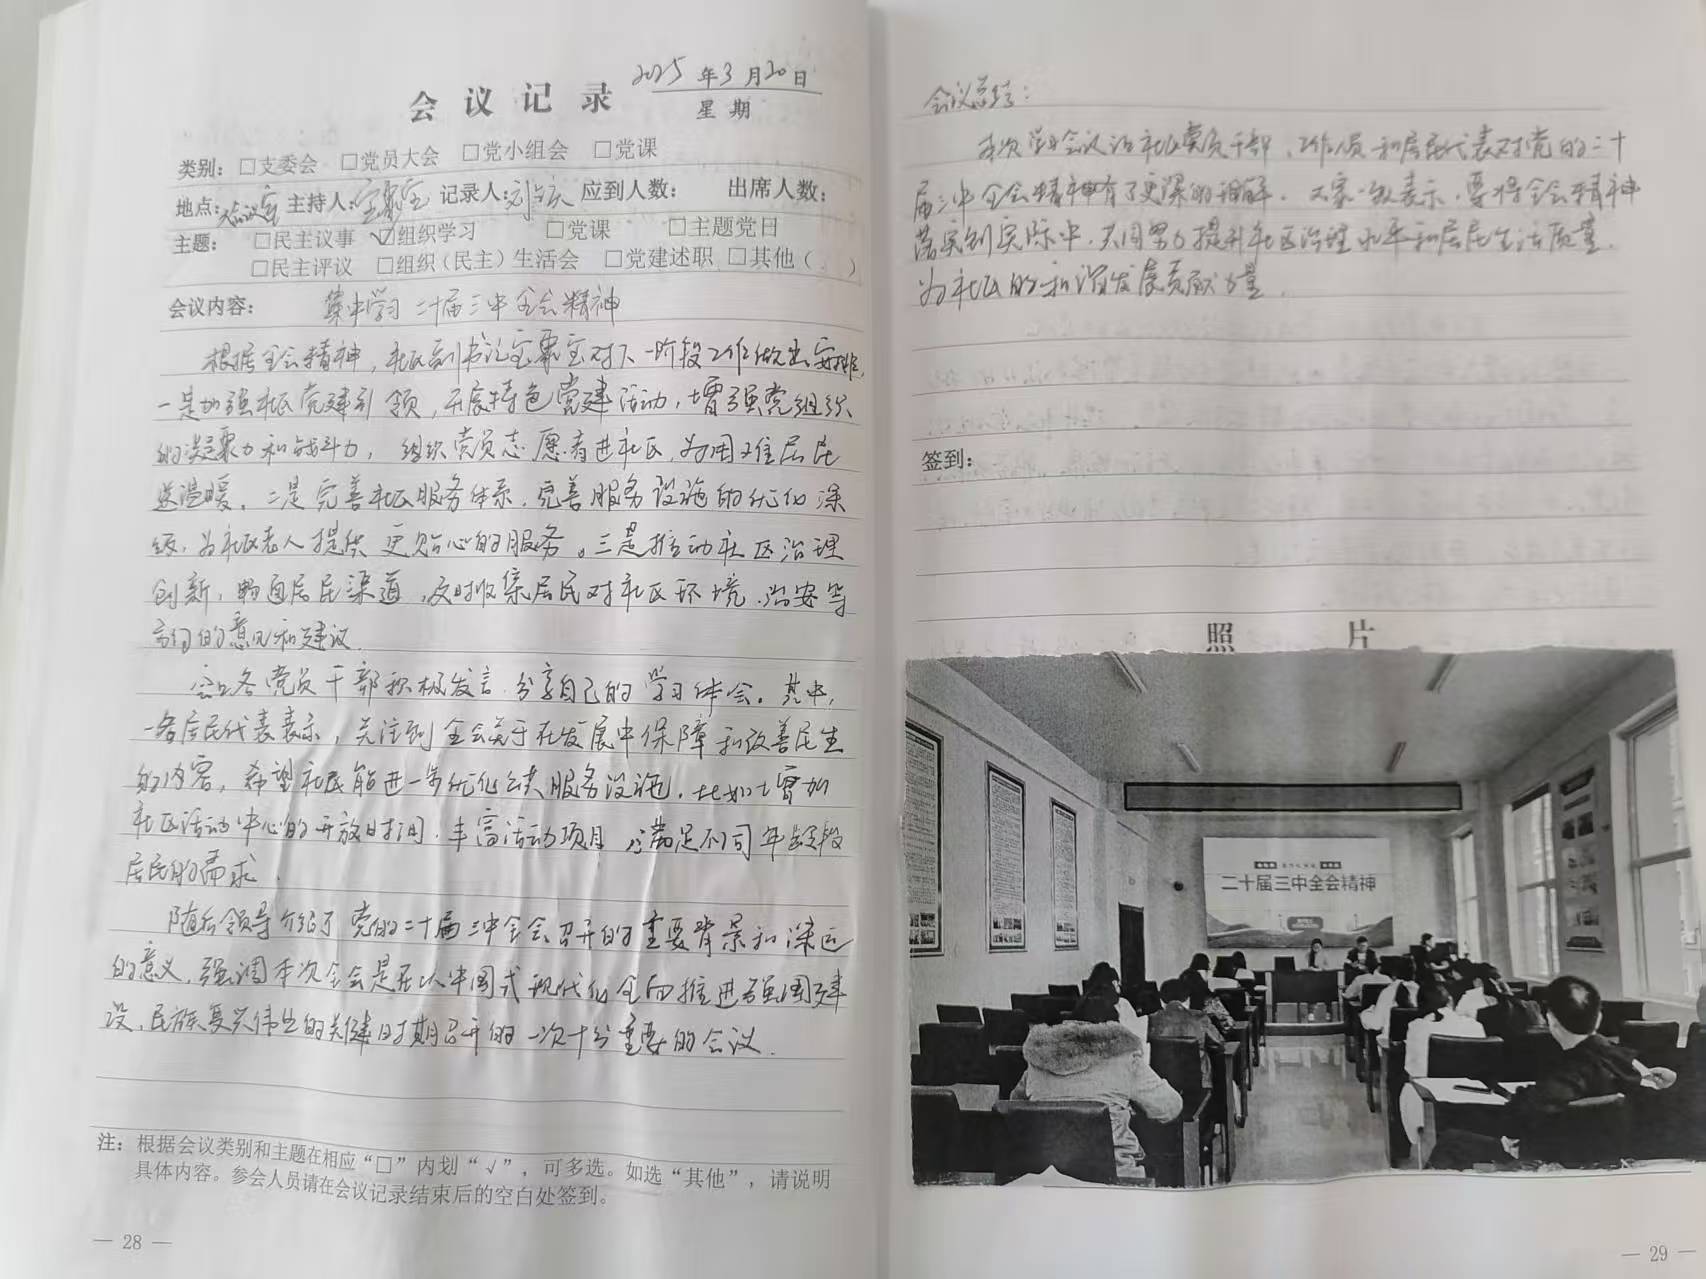 会议记录
2025年3月20日
星期
类别：□支委会 □党员大会 □党小组会 □党课
地点：会议室 主持人： 记录人：刘 应到人数： 出席人数：
主题： □民主议事 ☑组织学习 □党课 □主题党日
□民主评议 □组织（民主）生活会 □党建述职 □其他（ ）
会议内容： 集中学习二十届三中全会精神
根据全会精神，社区副书记 对下一阶段工作做出安排，
一是加强社区党建引领，开展特色党建活动，增强党组织
的凝聚力和战斗力，组织党员志愿者进社区，为困难居民
送温暖。二是完善社区服务体系，完善服务设施的优化
级，为社区老人提供更贴心的服务。三是推动社区治理
创新，畅通居民渠道，及时收集居民对社区环境、治安等
方面的意见和建议。
会上各党员干部积极发言，分享自己的学习体会。其中，
一名居民代表表示，关注到全会关于在发展中保障和改善民生
的内容，希望社区能进一步优化公共服务设施，比如增加
社区活动中心的开放时间，丰富活动项目，满足不同年龄段
居民的需求。
随后领导介绍了党的二十届三中全会召开的重要背景和深远
的意义，强调本次全会是在以中国式现代化全面推进强国建
设、民族复兴伟业的关键时期召开的一次十分重要的会议。
注：根据会议类别和主题在相应“□”内划“√”，可多选。如选“其他”，请说明
具体内容。参会人员请在会议记录结束后的空白处签到。
— 28 —
会议总结：
本次学习会议让社区党员干部、工作人员和居民代表对党的二十
届三中全会精神有了更深的理解。大家一致表示，要将全会精神
落实到实际中，共同努力提升社区治理水平和居民生活质量，
为社区的和谐发展贡献力量。
签到：
照 片
二十届三中全会精神
— 29 —